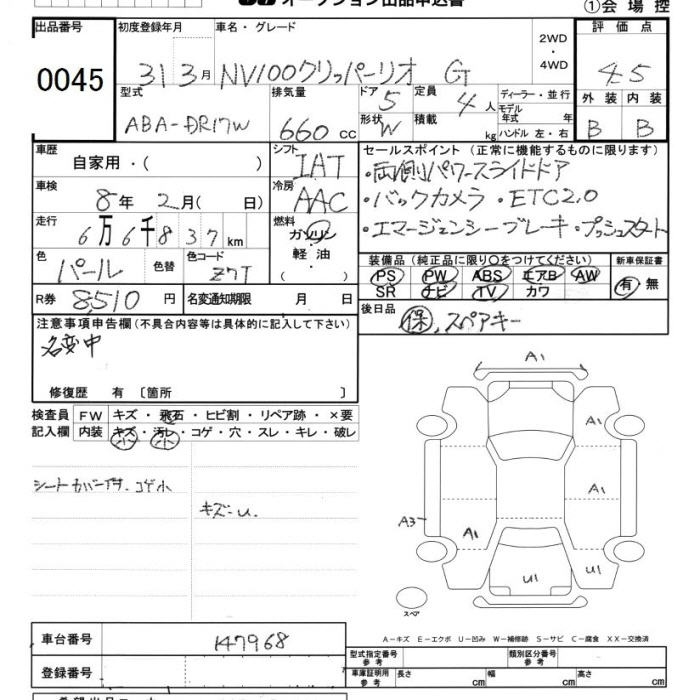 オークション出品申込書
①会場控
出品番号 初度登録年月 車名・グレード 2WD ・ 4WD 評価点
0045 31 3月 NV100クリッパーリオ G 4.5
型式 排気量 ドア 5 定員 4人 ディーラー・並行 外装 内装
モデル年式 年
ABA-DR17W 660cc 形状 W 積載 kg ハンドル 左・右 B B
車歴 シフト セールスポイント (正常に機能するものに限ります)
自家用・( ) IAT ・両側パワースライドドア
車検 冷房 ・バックカメラ ・ETC2.0
8年 2月( 日) AAC ・エマージェンシーブレーキ・プッシュスタート
走行 燃料
6万6千837km ガソリン 軽油・
色 色替 色コード 装備品 (純正品に限り○をつけてください) 新車保証書
パール Z7T PS PW ABS エアB AW 有・無
SR ナビ TV カワ
R券 8,510円 名変通知期限 月 日 後日品
㋭保, スペアキー
注意事項申告欄(不具合内容等は具体的に記入して下さい)
名変中
修復歴 有 〔箇所 〕
検査員 FW キズ・飛石・ヒビ割・リペア跡・×要
記入欄 内装 キズ・汚レ・コゲ・穴・スレ・キレ・破レ
小 小
シートカバーです. コゲ小
キズ.U.
A1
A1
A1
A3
A1
U1
U1
スペア
A-キズ E-エクボ U-凹み W-補修跡 S-サビ C-腐食 XX-交換済
車台番号 147968 型式指定番号 参考 類別区分番号 参考
登録番号 車庫証明用 参考 長さ cm 幅 cm 高さ cm
希望出品コーナー